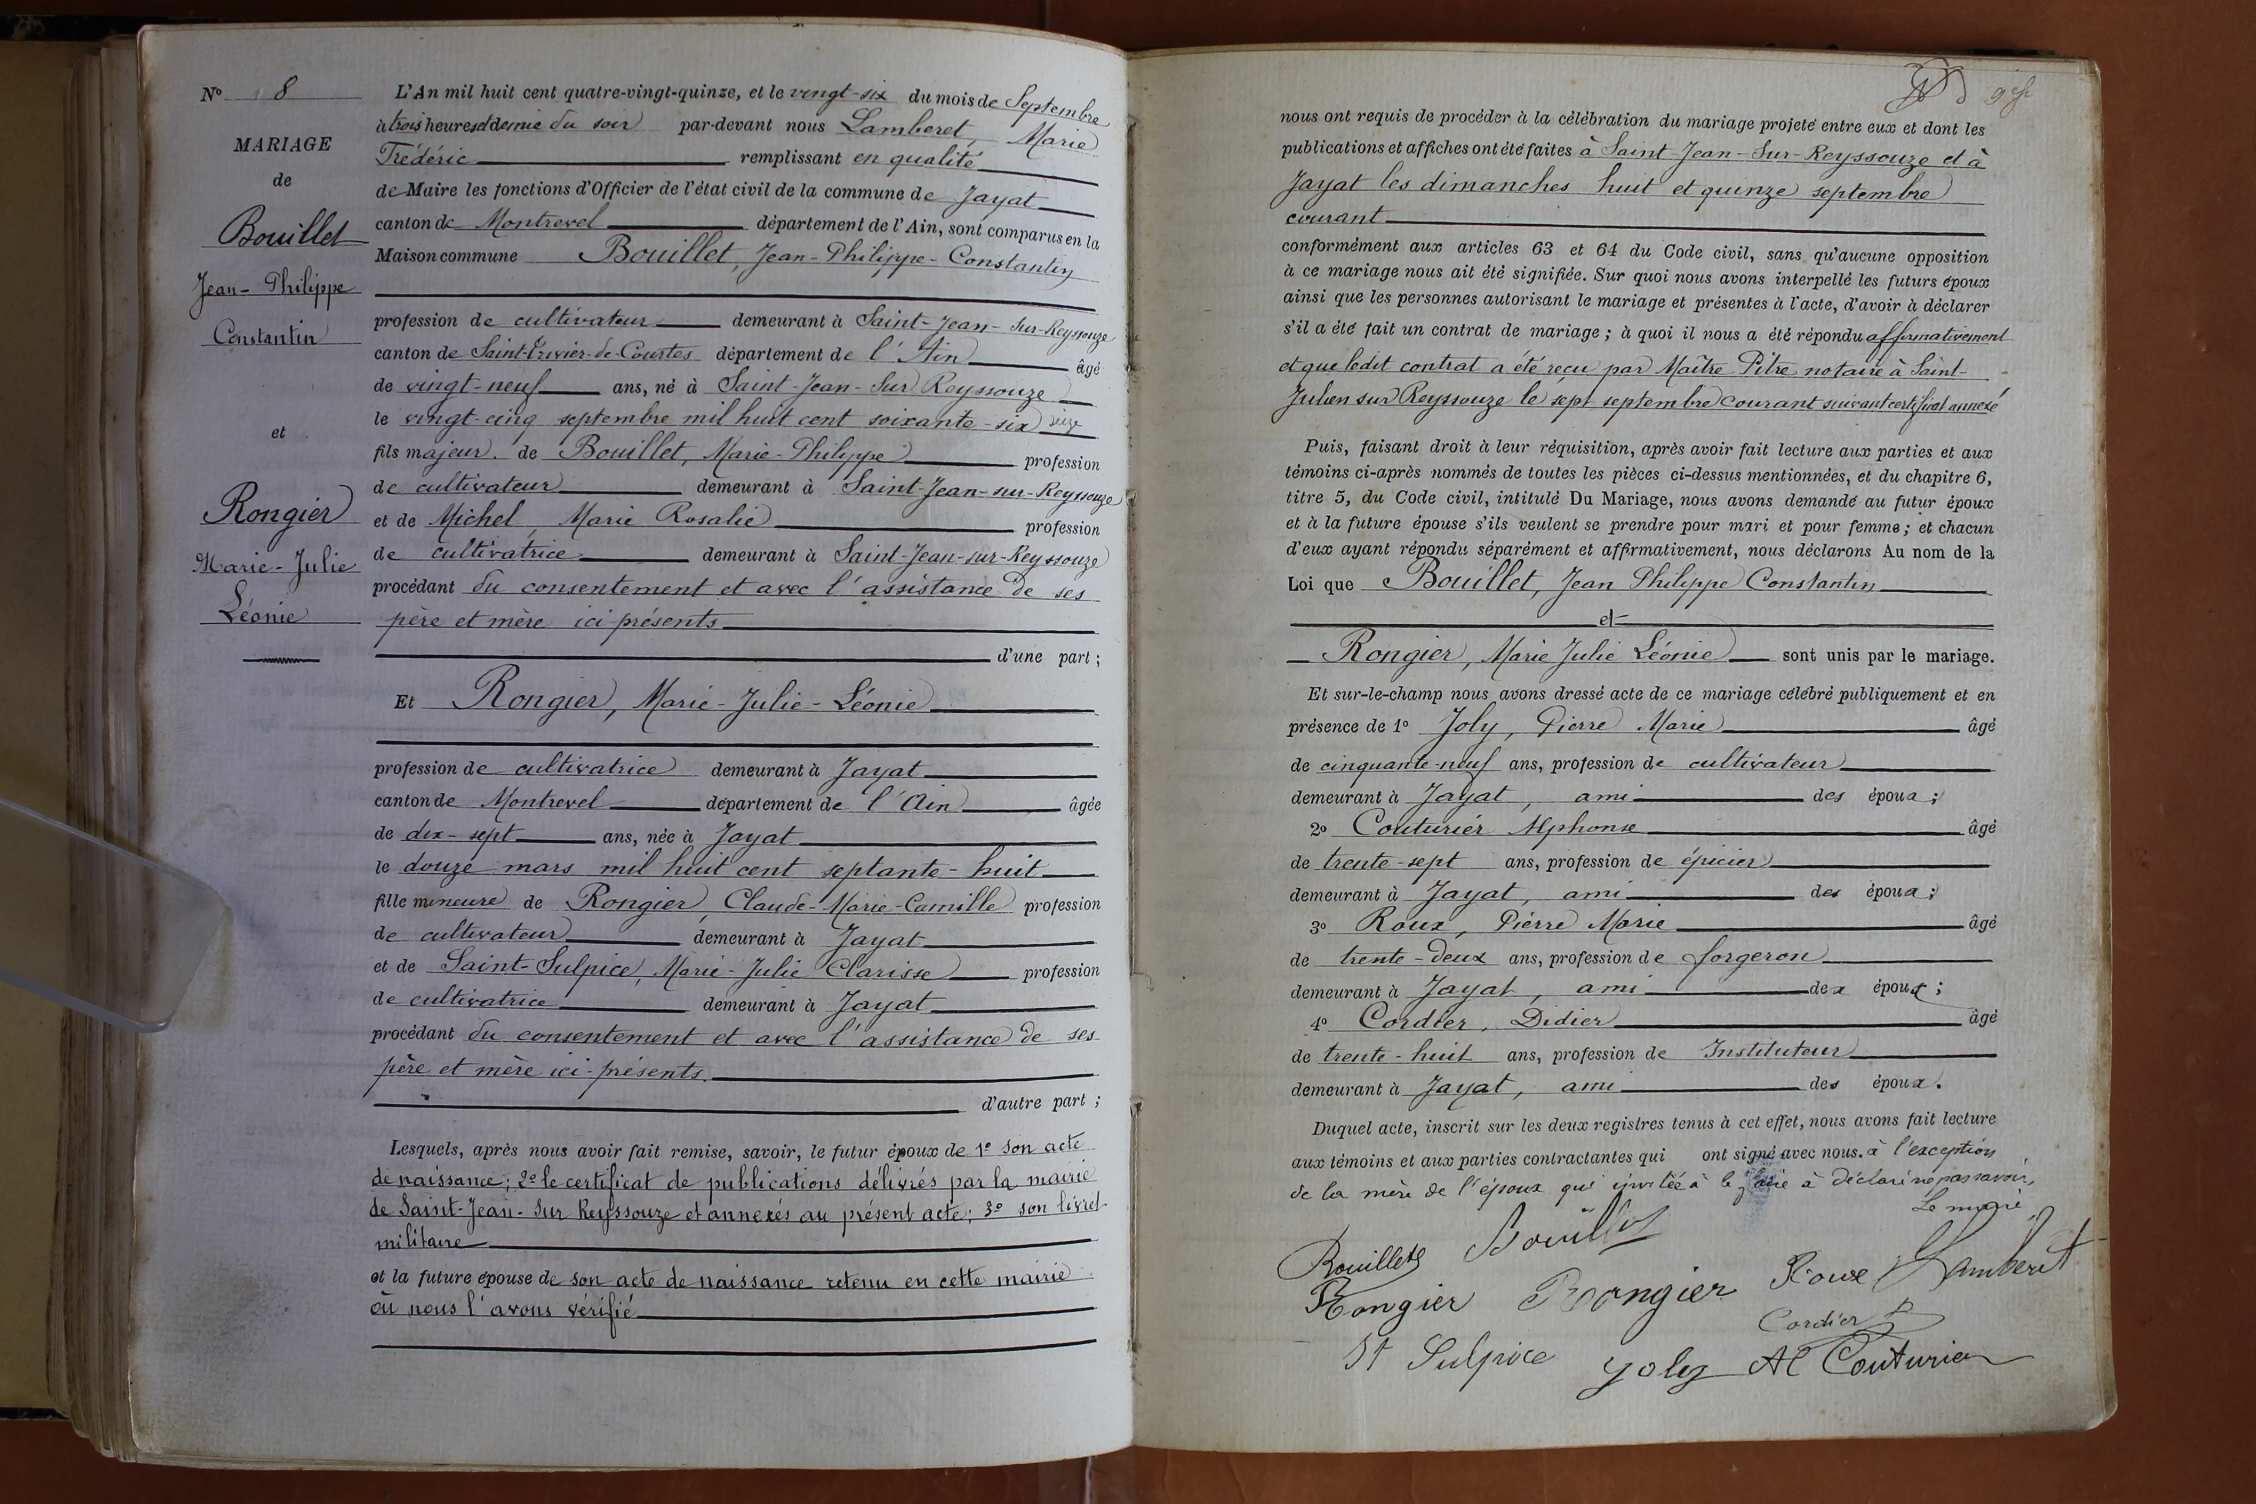 N° 8
MARIAGE
de
Bouillet
Jean-Philippe
Constantin
et
Rongier
Marie-Julie
Léonie
L'An mil huit cent quatre-vingt-quinze, et le vingt-six du mois de Septembre
à trois heures et demie du soir par-devant nous Lamberet, Marie
Frédéric remplissant en qualité
de Maire les fonctions d'Officier de l'état civil de la commune de Jayat
canton de Montrevel département de l'Ain, sont comparus en la
Maison commune Bouillet, Jean-Philippe-Constantin
profession de cultivateur demeurant à Saint-Jean-sur-Reyssouze
canton de Saint-Trivier-de-Courtes département de l'Ain âgé
de vingt-neuf ans, né à Saint-Jean-Sur Reyssouze
le vingt-cinq septembre mil huit cent soixante-six
fils majeur de Bouillet, Marie-Philippe profession
de cultivateur demeurant à Saint-Jean-sur-Reyssouze
et de Michel, Marie Rosalie profession
de cultivatrice demeurant à Saint-Jean-sur-Reyssouze
procédant du consentement et avec l'assistance de ses
père et mère ici présents
d'une part ;
Et Rongier, Marie-Julie-Léonie
profession de cultivatrice demeurant à Jayat
canton de Montrevel département de l'Ain âgée
de dix-sept ans, née à Jayat
le douze mars mil huit cent septante-huit
fille mineure de Rongier, Claude-Marie-Camille profession
de cultivateur demeurant à Jayat
et de Saint-Sulpice, Marie-Julie Clarisse profession
de cultivatrice demeurant à Jayat
procédant du consentement et avec l'assistance de ses
père et mère ici-présents.
d'autre part ;
Lesquels, après nous avoir fait remise, savoir, le futur époux de 1° son acte
de naissance ; 2° le certificat de publications délivrés par la mairie
de Saint-Jean-Sur Reyssouze et annexés au présent acte ; 3° son livret
militaire
et la future épouse de son acte de naissance retenu en cette mairie
où nous l'avons vérifié
nous ont requis de procéder à la célébration du mariage projeté entre eux et dont les
publications et affiches ont été faites à Saint-Jean-Sur-Reyssouze et à
Jayat les dimanches huit et quinze septembre
courant
conformément aux articles 63 et 64 du Code civil, sans qu'aucune opposition
à ce mariage nous ait été signifiée. Sur quoi nous avons interpellé les futurs époux
ainsi que les personnes autorisant le mariage et présentes à l'acte, d'avoir à déclarer
s'il a été fait un contrat de mariage ; à quoi il nous a été répondu affirmativement
et que ledit contrat a été reçu par Maître Pitre notaire à Saint-
Julien sur Reyssouze le sept septembre courant suivant certificat annexé
Puis, faisant droit à leur réquisition, après avoir fait lecture aux parties et aux
témoins ci-après nommés de toutes les pièces ci-dessus mentionnées, et du chapitre 6,
titre 5, du Code civil, intitulé Du Mariage, nous avons demandé au futur époux
et à la future épouse s'ils veulent se prendre pour mari et pour femme ; et chacun
d'eux ayant répondu séparément et affirmativement, nous déclarons Au nom de la
Loi que Bouillet, Jean Philippe Constantin
et
Rongier, Marie Julie Léonie sont unis par le mariage.
Et sur-le-champ nous avons dressé acte de ce mariage célébré publiquement et en
présence de 1° Joly, Pierre Marie âgé
de cinquante-neuf ans, profession de cultivateur
demeurant à Jayat, ami des époux ;
2° Couturier Alphonse âgé
de trente-sept ans, profession de épicier
demeurant à Jayat, ami des époux ;
3° Roux, Pierre Marie âgé
de trente-deux ans, profession de forgeron
demeurant à Jayat, ami des époux ;
4° Cordier, Didier âgé
de trente-huit ans, profession de Instituteur
demeurant à Jayat, ami des époux.
Duquel acte, inscrit sur les deux registres tenus à cet effet, nous avons fait lecture
aux témoins et aux parties contractantes qui ont signé avec nous. à l'exception
de la mère de l'époux qui invitée à le faire à déclaré ne pas savoir,
Le maire,
Bouillet Bouillet
Rongier Rongier Roux Lamberet
Cordier
St Sulpice Joly Al Couturier